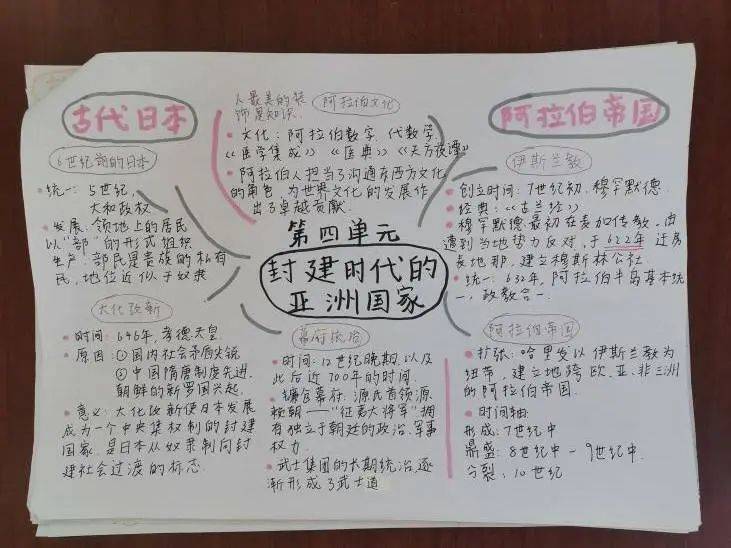 第四单元
封建时代的
亚洲国家
古代日本
6世纪前的日本
统一:5世纪,
大和政权
发展:领地上的居民
以“部”的形式组织
生产,部民是贵族的私有
民,地位近似于奴隶
大化改新
时间:646年,孝德天皇
原因:①国内社会矛盾尖锐
②中国隋唐制度先进,
朝鲜的新罗国兴起.
意义:大化改新使日本发展
成为一个中央集权制的封建
国家,是日本从奴隶制向封
建社会过渡的标志.
幕府统治
时间:12世纪晚期以及
此后近700年的时间.
镰仓幕府:源氏首领源
赖朝——“征夷大将军”拥
有独立于朝廷的政治、军事
权力.
武士集团的长期统治,逐
渐形成了武士道
人最美的装
饰是知识.
阿拉伯文化
文化:阿拉伯数字.代数学.
《医学集成》《医典》《天方夜谭》
阿拉伯人担当了沟通东西方文化
的角色,为世界文化的发展作
出了卓越贡献.
阿拉伯帝国
伊斯兰教
创立时间:7世纪初.穆罕默德.
经典:《古兰经》
穆罕默德最初在麦加传教,由
遭到当地势力反对,于622年迁易
长地那,建立穆斯林公社.
统一:632年,阿拉伯半岛基本统
一,政教合一.
阿拉伯帝国
扩张:哈里发以伊斯兰教为
纽带,建立地跨欧、亚、非三洲
的阿拉伯帝国.
时间轴:
形成:7世纪中
鼎盛:8世纪中-9世纪中.
分裂:10世纪